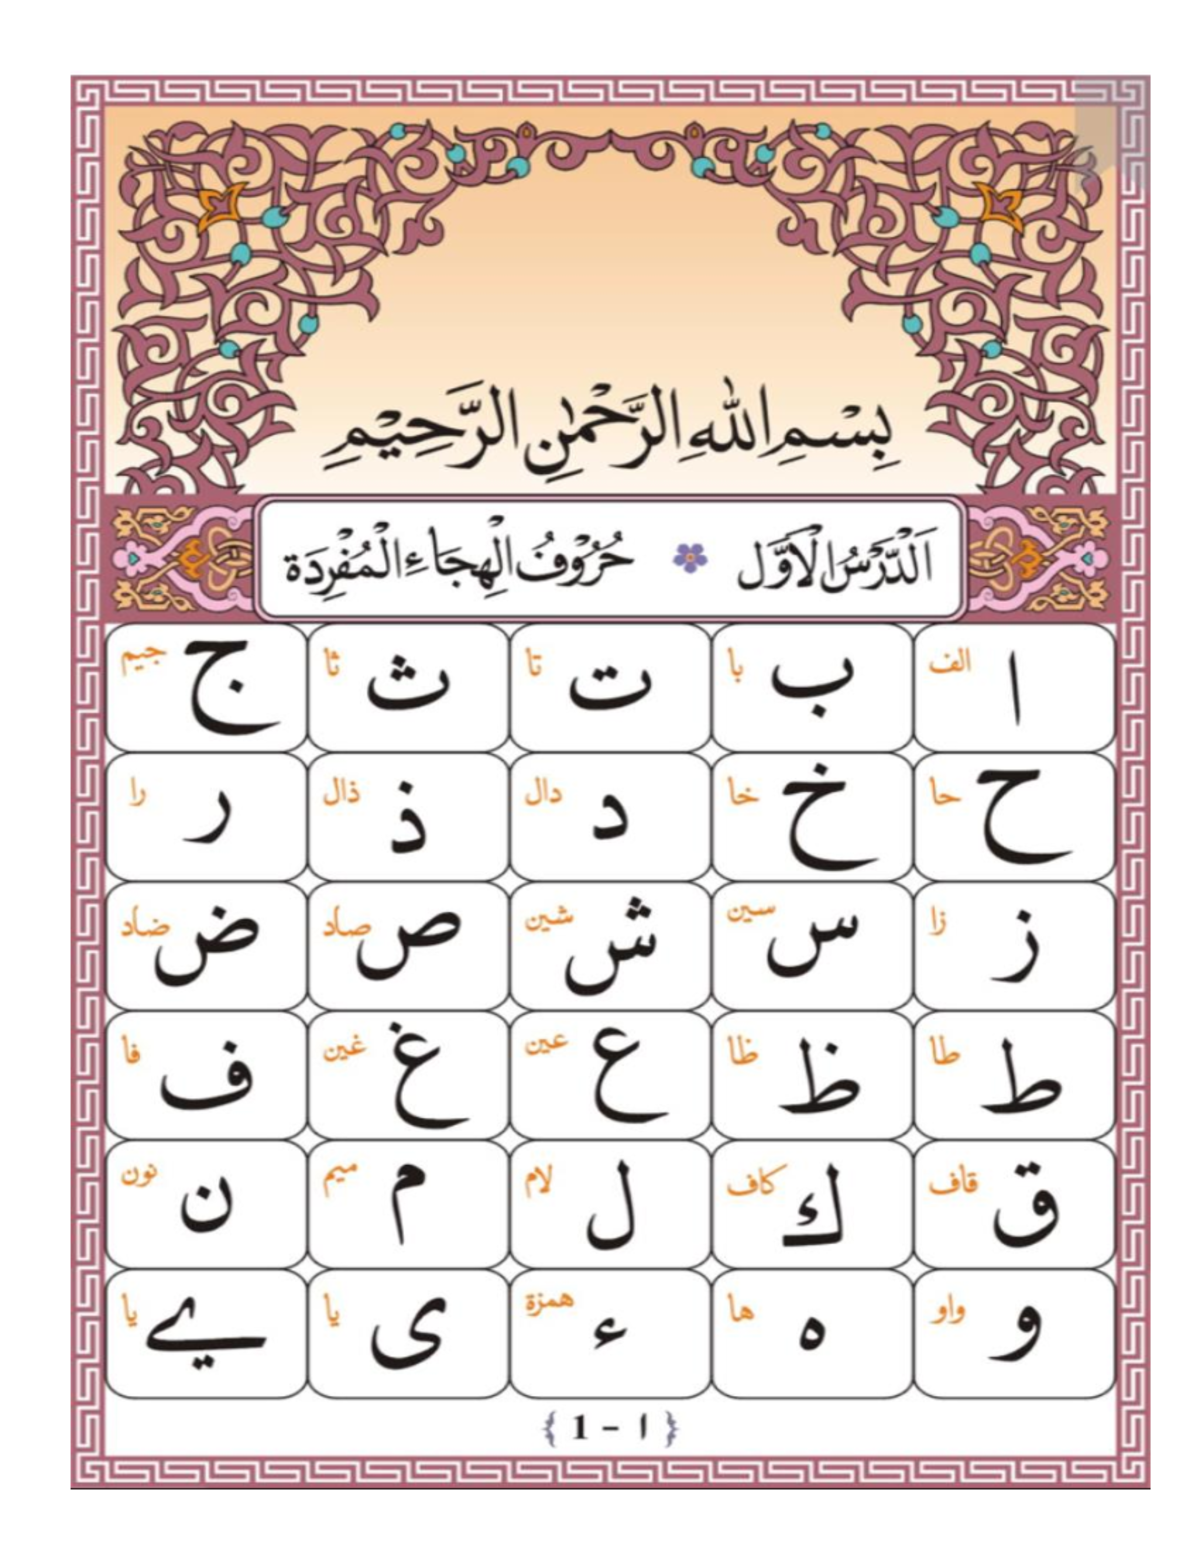 بِسْمِ اللهِ الرَّحْمٰنِ الرَّحِيْمِ
اَلدَّرْسُ الْاَوَّل حُرُوْفُ الْهِجَاءِ الْمُفْرِدَة
ا الف ب با ت تا ث ثا ج جيم
ح حا خ خا د دال ذ ذال ر را
ز زا س سين ش شين ص صاد ض ضاد
ط طا ظ ظا ع عين غ غين ف فا
ق قاف ك كاف ل لام م ميم ن نون
و واو ه ها ء همزة ى يا ے يا
{ ا - 1 }